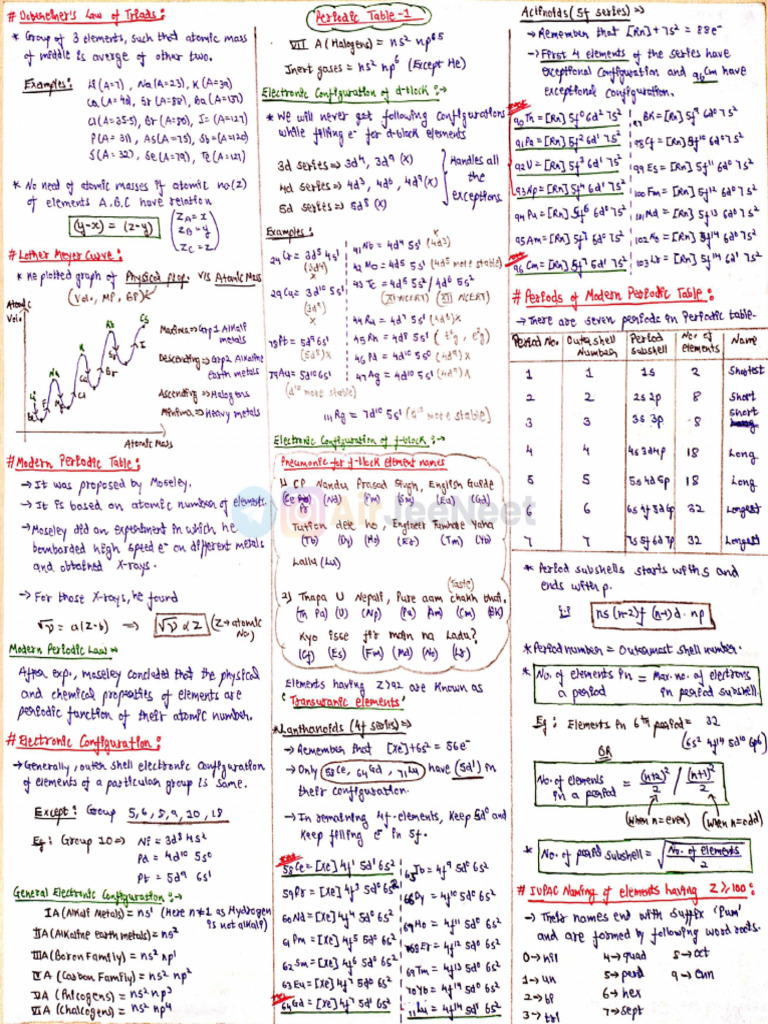 # Dobereiner's Law of Triads:
* Group of 3 elements, such that atomic mass
of middle is averge of other two.
Examples:
Li (A=7), Na (A=23), K (A=39)
Ca (A=40), Sr (A=88), Ba (A=137)
Cl (A=35.5), Br (A=80), I= (A=127)
P (A=31), As (A=75), Sb= (A=120)
S (A=32), Se (A=79), Te (A=127)
* No need of atomic masses if atomic no (z)
of elements A.B.C have relation
(y-x) = (z-y)
ZA = x
ZB = y
ZC = z
# Lother Meyer Curve:
* He plotted graph of Physical Prop. V/s Atomic Mass
(Vol., MP, BP)
Atomic
Vol.
Maxima => Grp1 Alkali
metals
Descending => Grp2 Alkaline
earth metals
Ascending => Halogens
Minima => Heavy metals
Atomic Mass
# Modern Periodic Table:
→ It was proposed by Moseley.
→ It is based on atomic number of elements.
→ Moseley did an experiment in which he
bombarded high speed e⁻ on different metals
and obtained X-rays.
→ For those X-rays, he found
√ν = a(Z-b) ⇒ √ν ∝ Z (Z → atomic
No.)
Modern Periodic Law ⇒
After exp., moseley concluded that the physical
and chemical properties of elements are
periodic function of their atomic number.
# Electronic Configuration:
→ Generally, outer shell electronic configuration
of elements of a particular group is same.
Except: Group 5, 6, 8, 9, 10, 18
Eg: Group 10 => Ni = 3d⁸ 4s²
Pd = 4d¹⁰ 5s⁰
Pt = 5d⁹ 6s¹
General Electronic Configuration :→
IA (Alkali Metals) = ns¹ (Here n≠1 as Hydrogen
is not alkali)
IIA (Alkaline earth metals) = ns²
IIIA (Boron Family) = ns² np¹
IVA (Carbon Family) = ns² np²
VA (Pnicogens) = ns² np³
VIA (Chalcogens) = ns² np⁴
Periodic Table -1
VII A (Halogens) = ns² np⁵
Inert gases = ns² np⁶ (Except He)
Electronic Configuration of d-block :→
* We will never get following configurations
while filling e⁻ for d-block elements
3d series => 3d⁴, 3d⁹ (X)
4d series => 4d³, 4d⁰, 4d⁹ (X)
5d series => 5d⁸ (X)
Handles all
the
exceptions
Examples:
24Cr = 3d⁵ 4s¹
(3d⁴)
X
29Cu = 3d¹⁰ 5s¹
(3d⁹)
X
78Pt = 5d⁹ 6s¹
(5d⁸) X
79Au = 5d¹⁰ 6s¹
(d¹⁰ more stable)
41Nb = 4d⁴ 5s¹ (4d³)
42Mo = 4d⁵ 5s¹ (4d⁵ more stable)
43Tc = 4d⁵ 5s² / 4d⁶ 5s¹
(XI NCERT) (XII NCERT)
44Ru = 4d⁷ 5s¹
45Rh = 4d⁸ 5s¹
46Pd = 4d¹⁰ 5s⁰
47Ag = 4d¹⁰ 5s¹ (4d⁹) X
111Rg = 7d¹⁰ 5s¹ (d¹⁰ more stable)
Electronic Configuration of f-block :→
Pneumonic for f-block element names
1) CP Nandu Prasad Singh, English Guide
(Nd) (Pm) (Sm) (Eu) (Gd)
Tution dete ho, Engineer Tumhare Yaha
(Tb) (Dy) (Ho) (Er) (Tm) (Yb)
Lallu (Lu)
(Taste)
2) Thapa U Nepali, Pure aam chakh that.
(Th Pa) (U) (Np) (Pu) (Am) (Cm) (BK)
Kyo isse fir main na Ladu?
(Cf) (Es) (Fm) (Md) (No) (Lr)
Elements having Z>92 are known as
'Transuranic elements'
* Lanthanoids (4f series) =>
→ Remember that [Xe]+6s² = 56e⁻
→ Only 58Ce, 64Gd, 71Lu have (5d¹) in
their configuration.
→ In remaining 4f-elements, keep 5d⁰ and
keep filling e⁻ in 5f.
58Ce = [Xe] 4f¹ 5d¹ 6s²
59Pr = [Xe] 4f³ 5d⁰ 6s²
60Nd = [Xe] 4f⁴ 5d⁰ 6s²
61Pm = [Xe] 4f⁵ 5d⁰ 6s²
62Sm = [Xe] 4f⁶ 5d⁰ 6s²
63Eu = [Xe] 4f⁷ 5d⁰ 6s²
64Gd = [Xe] 4f⁷ 5d¹ 6s²
65Tb = 4f⁹ 5d⁰ 6s²
66Dy = 4f¹⁰ 5d⁰ 6s²
67Ho = 4f¹¹ 5d⁰ 6s²
68Er = 4f¹² 5d⁰ 6s²
69Tm = 4f¹³ 5d⁰ 6s²
70Yb = 4f¹⁴ 5d⁰ 6s²
71Lu = 4f¹⁴ 5d¹ 6s²
AirJeeNeet
Actinoids (5f series) =>
→ Remember that [Rn]+7s² = 88e⁻
→ First 4 elements of the series have
exceptional configuration and 96Cm have
exceptional configuration.
90Th = [Rn] 5f⁰ 6d² 7s²
91Pa = [Rn] 5f² 6d¹ 7s²
92U = [Rn] 5f³ 6d¹ 7s²
93Np = [Rn] 5f⁴ 6d¹ 7s²
94Pu = [Rn] 5f⁶ 6d⁰ 7s²
95Am = [Rn] 5f⁷ 6d⁰ 7s²
96Cm = [Rn] 5f⁷ 6d¹ 7s²
97BK = [Rn] 5f⁹ 6d⁰ 7s²
98Cf = [Rn] 5f¹⁰ 6d⁰ 7s²
99Es = [Rn] 5f¹¹ 6d⁰ 7s²
100Fm = [Rn] 5f¹² 6d⁰ 7s²
101Md = [Rn] 5f¹³ 6d⁰ 7s²
102No = [Rn] 5f¹⁴ 6d⁰ 7s²
103Lr = [Rn] 5f¹⁴ 6d¹ 7s²
# Periods of Modern Periodic Table:
→ There are seven periods in Periodic table.
Period No. Outershell Number Period subshell No. of elements Name
1 1 1s 2 Shortest
2 2 2s 2p 8 Short
3 3 3s 3p 8 Short
4 4 4s 3d 4p 18 Long
5 5 5s 4d 5p 18 Long
6 6 6s 4f 5d 6p 32 Longest
7 7 7s 5f 6d 7p 32 Longest
* Period subshells starts with s and
ends with p.
ns (n-2)f (n-1)d np
* Period number = Outermost shell number.
* No. of elements in a period = Max. no. of electrons in period subshell.
Eg: Elements in 6th period = 32
(6s² 4f¹⁴ 5d¹⁰ 6p⁶)
OR
No. of elements in a period = (n+2)²/2 / (n+1)²/2
(When n=even) (When n=odd)
* No. of period subshell = √(No. of elements / 2)
# IUPAC Naming of elements having Z≥100:
→ Their names end with suffix 'ium'
and are formed by following word roots.
0 → nil 4 → quad 8 → oct
1 → un 5 → pent 9 → enn
2 → bi 6 → hex
3 → tri 7 → sept